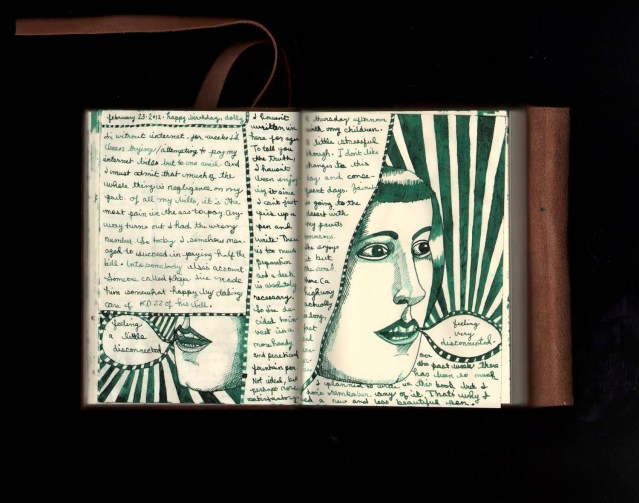 february 23 · 2012 · happy birthday, dolly
I'm without internet for weeks I'd
been trying/attempting to pay my
internet bills but to no avail. And
I must admit that much of the
whole thing is negligence on my
part. of all my bills, it is the
most pain in the ass to pay. Any
way turns out I had the wrong
number. So today I somehow man
aged to succeed in paying half the
bill. Into somebody else's account
Someone called
him somewhat happy by taking
care of KD 22 of his bill.
feeling
a little
disconnected
I haven't
written in
here for ages
To tell you
the truth,
I haven't
been enjoy
ing it since
I can't just
pick up a
pen and
write. There
is too much
preparation
and a desk
is absolutely
necessary.
So I've de-
cided to in-
vest in a
more handy
and practical
fountain pen.
Not ideal, but
perhaps more
satisfactory.
a thursday afternoon
with my children.
A little stressful
though. I don't like
changes to this
day and conse-
quent days. family
is going to the
desert with
my parents
tomorrow.
she enjoys
it but
the
Home Ca
highway
actually
along,
fact
and
feeling
very
disconnected.
over
the past week there
has been so much
I planned to write in this book but I
don't remember any of it. That's why I
need a new and less beautiful pen.